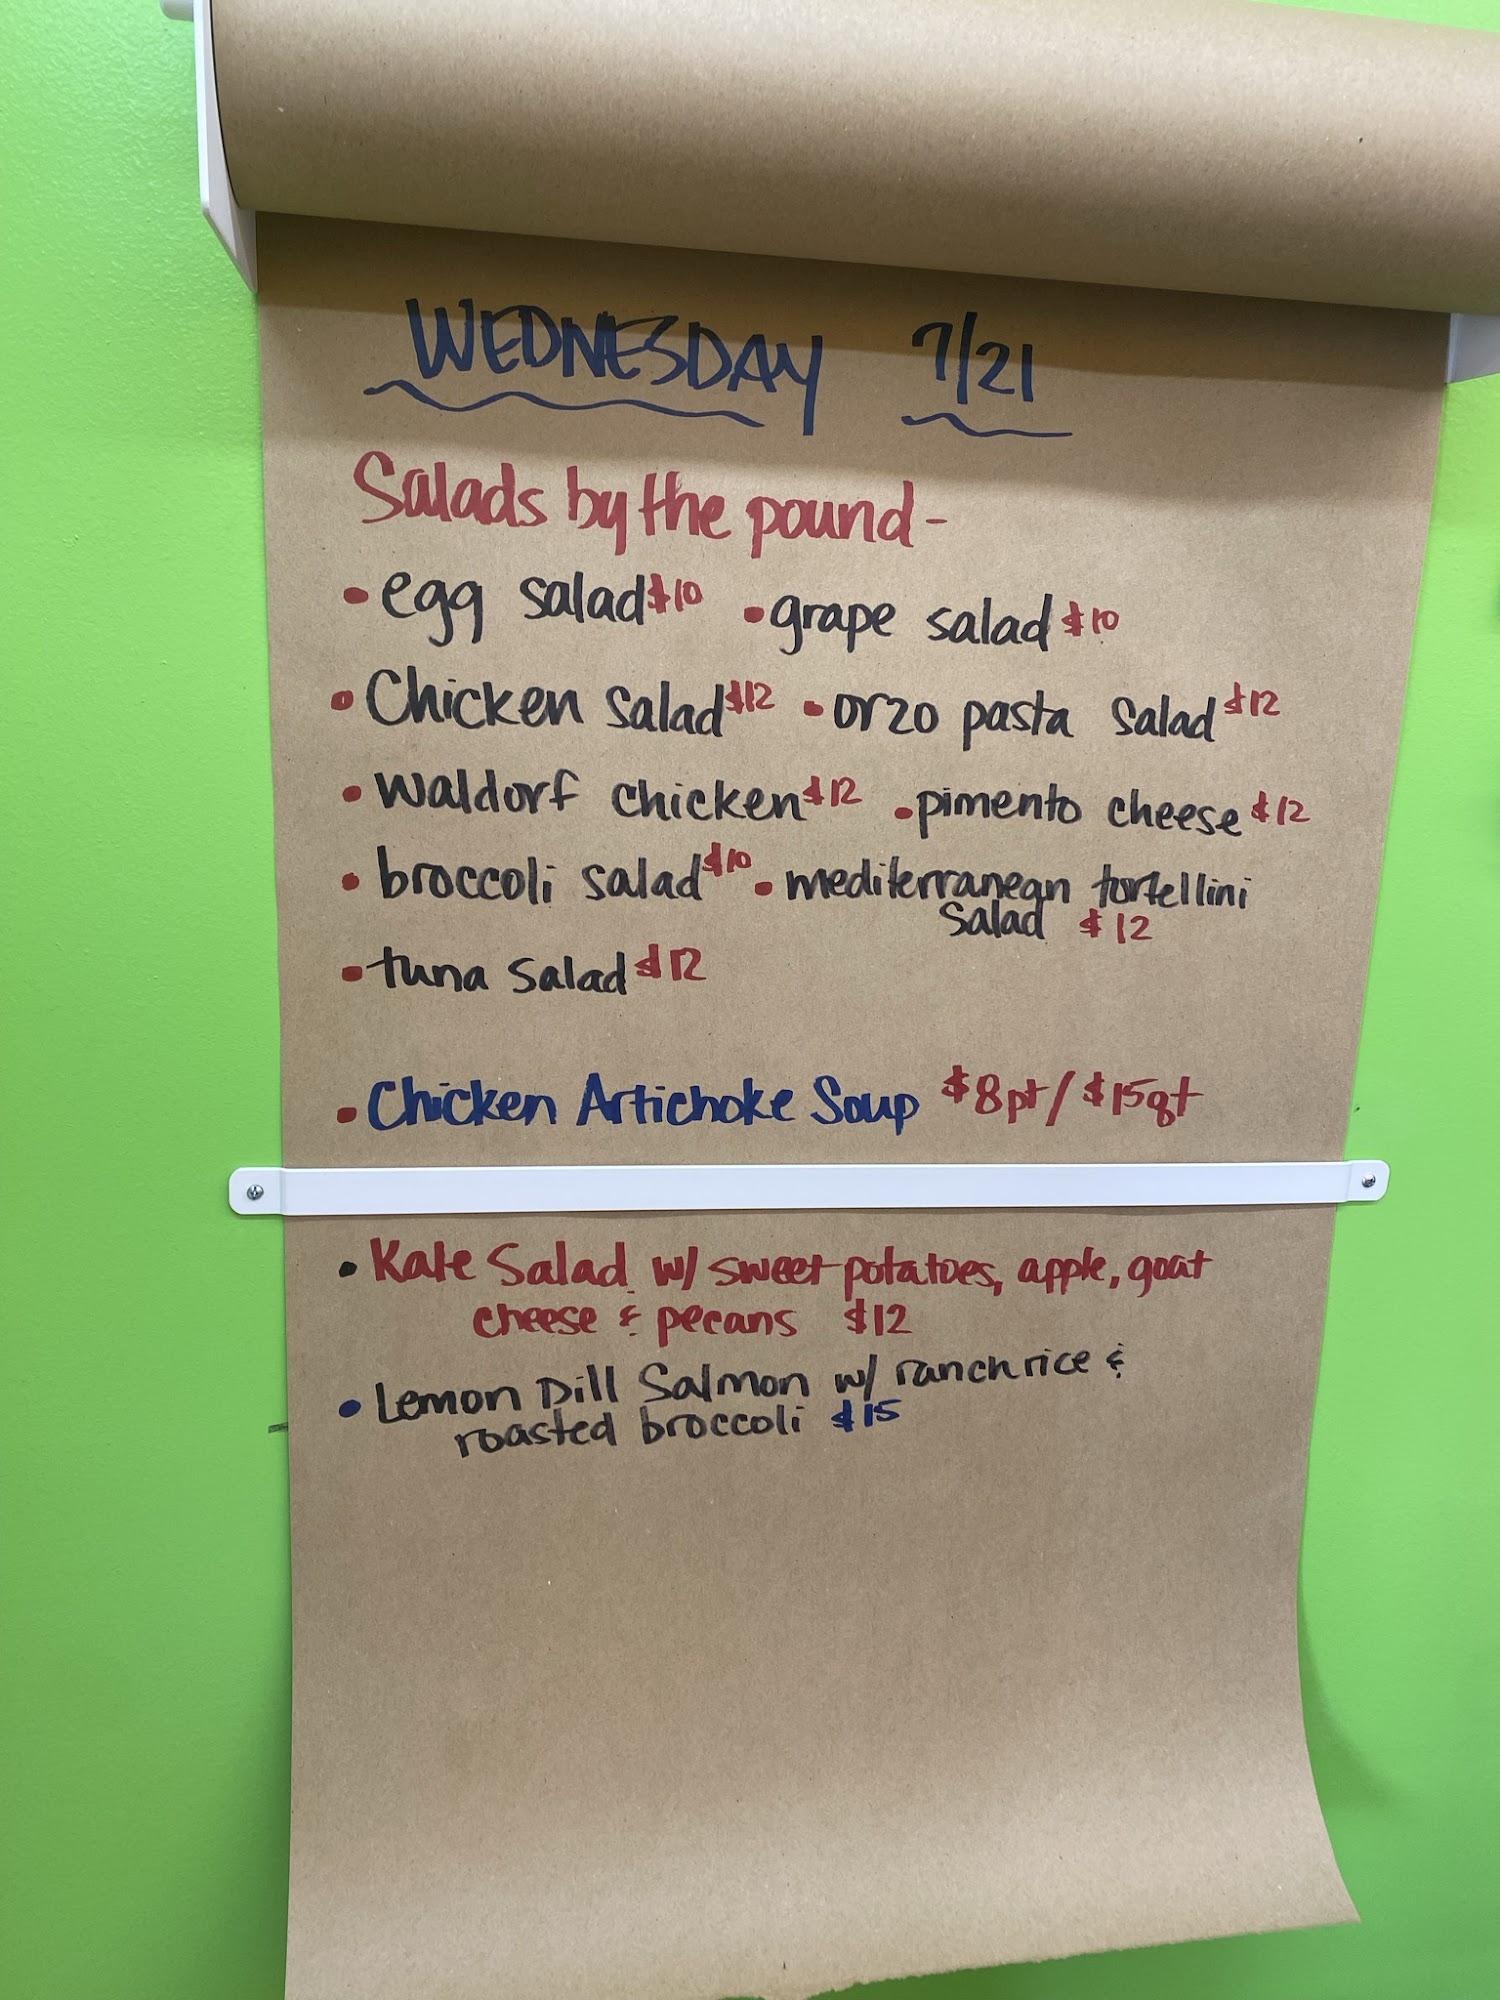 WEDNESDAY 7/21
Salads by the pound-
• egg salad $10 • grape salad $10
• Chicken salad $12 • orzo pasta salad $12
• waldorf chicken $12 • pimento cheese $12
• broccoli salad $10 • mediterranean tortellini
salad $12
• tuna salad $12
• Chicken Artichoke Soup $8pt/$15qt
• Kale Salad w/ sweet potatoes, apple, goat
cheese & pecans $12
• Lemon Dill Salmon w/ ranch rice &
roasted broccoli $15